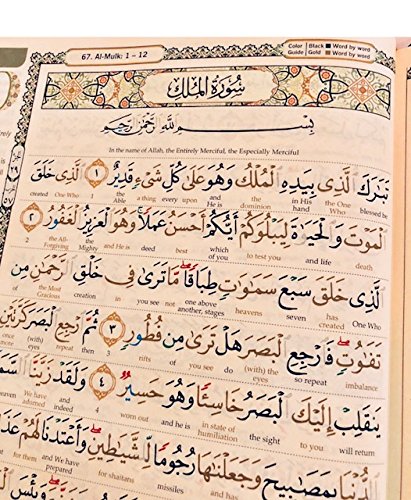 67. Al-Mulk: 1 – 12
Color Guide | Black ■ Word by word
Gold ■ Word by word
سُورَةُ الْمُلْكِ
بِسْمِ اللَّهِ الرَّحْمَٰنِ الرَّحِيمِ
In the name of Allah, the Entirely Merciful, the Especially Merciful
تَبَٰرَكَ الَّذِى بِيَدِهِ الْمُلْكُ وَهُوَ عَلَىٰ كُلِّ شَىْءٍ قَدِيرٌ ١ الَّذِى خَلَقَ
created One Who 1 Able a thing every upon and He is the dominion in His hand the One Who blessed be
الْمَوْتَ وَالْحَيَوٰةَ لِيَبْلُوَكُمْ أَيُّكُمْ أَحْسَنُ عَمَلًا ۚ وَهُوَ الْعَزِيزُ الْغَفُورُ ٢
2 the All-Forgiving the Mighty and He is deed best which of you to test you and life death
الَّذِى خَلَقَ سَبْعَ سَمَٰوَٰتٍ طِبَاقًا ۖ مَّا تَرَىٰ فِى خَلْقِ الرَّحْمَٰنِ مِن
of the Most Gracious creation in you see not one above another, stages heavens seven has created One Who
تَفَٰوُتٍ ۖ فَارْجِعِ الْبَصَرَ هَلْ تَرَىٰ مِن فُطُورٍ ٣ ثُمَّ ارْجِعِ الْبَصَرَ كَرَّتَيْنِ
once (with) eyes repeat then 3 rifts of you see do (with) the eyes so repeat imbalance
يَنقَلِبْ إِلَيْكَ الْبَصَرُ خَاسِئًا وَهُوَ حَسِيرٌ ٤ وَلَقَدْ زَيَّنَّا
We have adorned and indeed 4 worn out and he is in state of humiliation the sight to you will return
الدُّنْيَا بِمَصَٰبِيحَ وَجَعَلْنَٰهَا رُجُومًا لِّلشَّيَٰطِينِ ۖ وَأَعْتَدْنَا لَهُمْ
for them and We have prepared for shaitans missiles and has
وَبِئْسَ